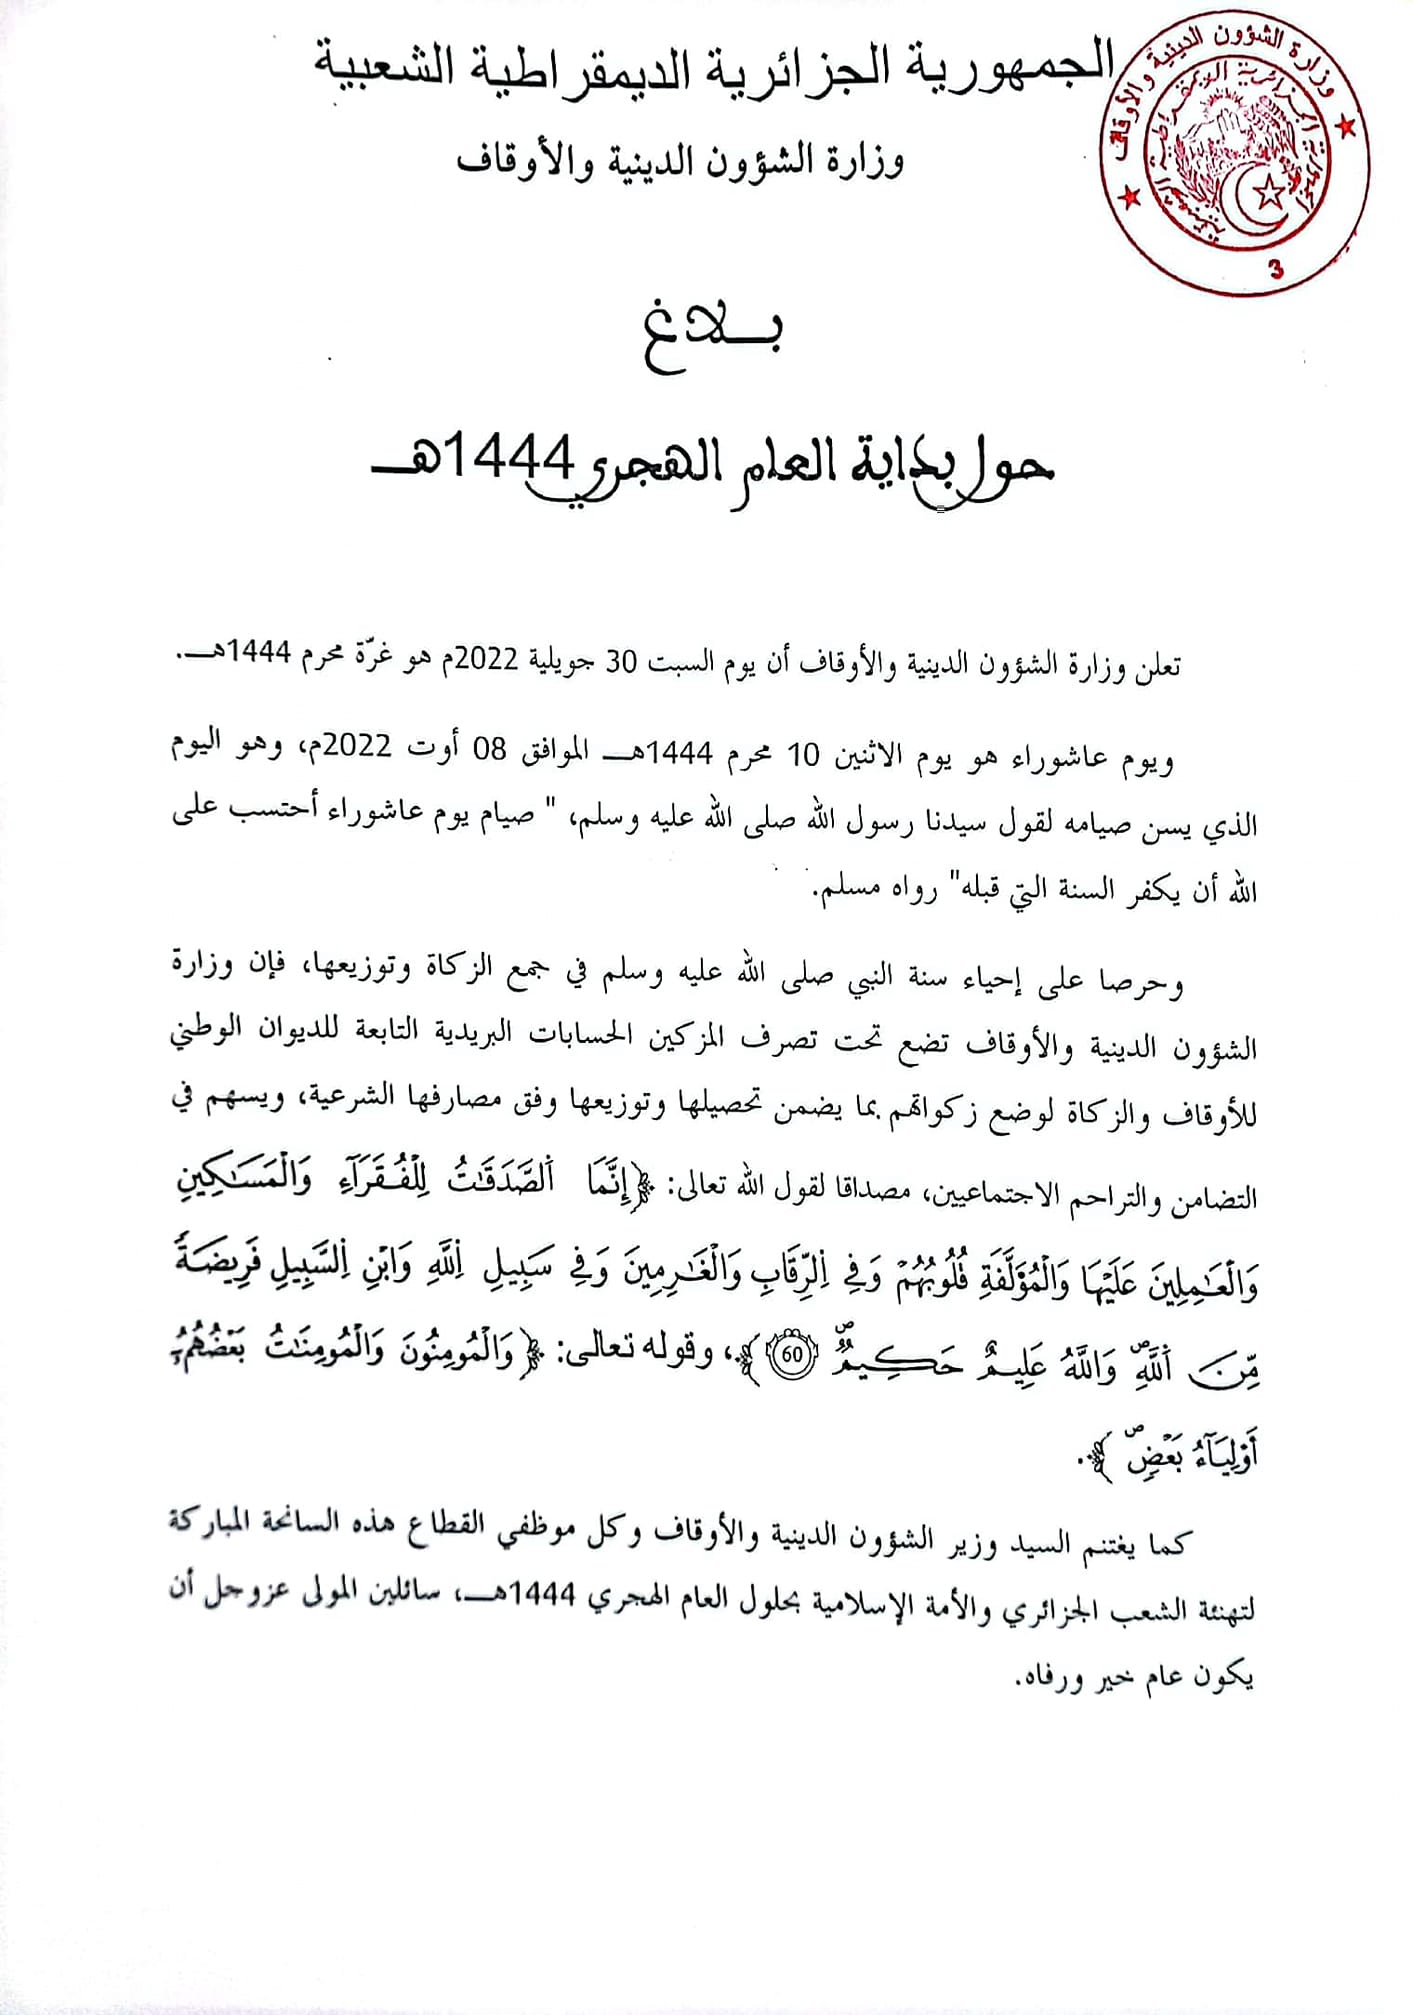 الجمهورية الجزائرية الديمقراطية الشعبية
وزارة الشؤون الدينية والأوقاف
وزارة الشؤون الدينية والأوقاف
الجمهورية الجزائرية الديمقراطية الشعبية
3
بـلاغ
حول بداية العام الهجري 1444هـ
تعلن وزارة الشؤون الدينية والأوقاف أن يوم السبت 30 جويلية 2022م هو غرّة محرم 1444هـ.
ويوم عاشوراء هو يوم الاثنين 10 محرم 1444هـ الموافق 08 أوت 2022م، وهو اليوم
الذي يسن صيامه لقول سيدنا رسول الله صلى الله عليه وسلم، " صيام يوم عاشوراء أحتسب على
الله أن يكفر السنة التي قبله" رواه مسلم.
وحرصا على إحياء سنة النبي صلى الله عليه وسلم في جمع الزكاة وتوزيعها، فإن وزارة
الشؤون الدينية والأوقاف تضع تحت تصرف المزكين الحسابات البريدية التابعة للديوان الوطني
للأوقاف والزكاة لوضع زكواتهم بما يضمن تحصيلها وتوزيعها وفق مصارفها الشرعية، ويسهم في
التضامن والتراحم الاجتماعيين، مصداقا لقول الله تعالى: ﴿إِنَّمَا اَ۬لصَّدَقَٰتُ لِلْفُقَرَآءِ وَالْمَسَٰكِينِ
وَالْعَٰمِلِينَ عَلَيْهَا وَالْمُؤَلَّفَةِ قُلُوبُهُمْ وَفِي اِ۬لرِّقَابِ وَالْغَٰرِمِينَ وَفِي سَبِيلِ اِ۬للَّهِ وَابْنِ اِ۬لسَّبِيلِ فَرِيضَةً
مِّنَ اَ۬للَّهِ وَاللَّهُ عَلِيمٌ حَكِيمٌ 60﴾، وقوله تعالى: ﴿وَالْمُومِنُونَ وَالْمُومِنَٰتُ بَعْضُهُمُۥٓ
أَوْلِيَآءُ بَعْضٖ﴾.
كما يغتنم السيد وزير الشؤون الدينية والأوقاف وكل موظفي القطاع هذه السانحة المباركة
لتهنئة الشعب الجزائري والأمة الإسلامية بحلول العام الهجري 1444هـ، سائلين المولى عزوجل أن
يكون عام خير ورفاه.